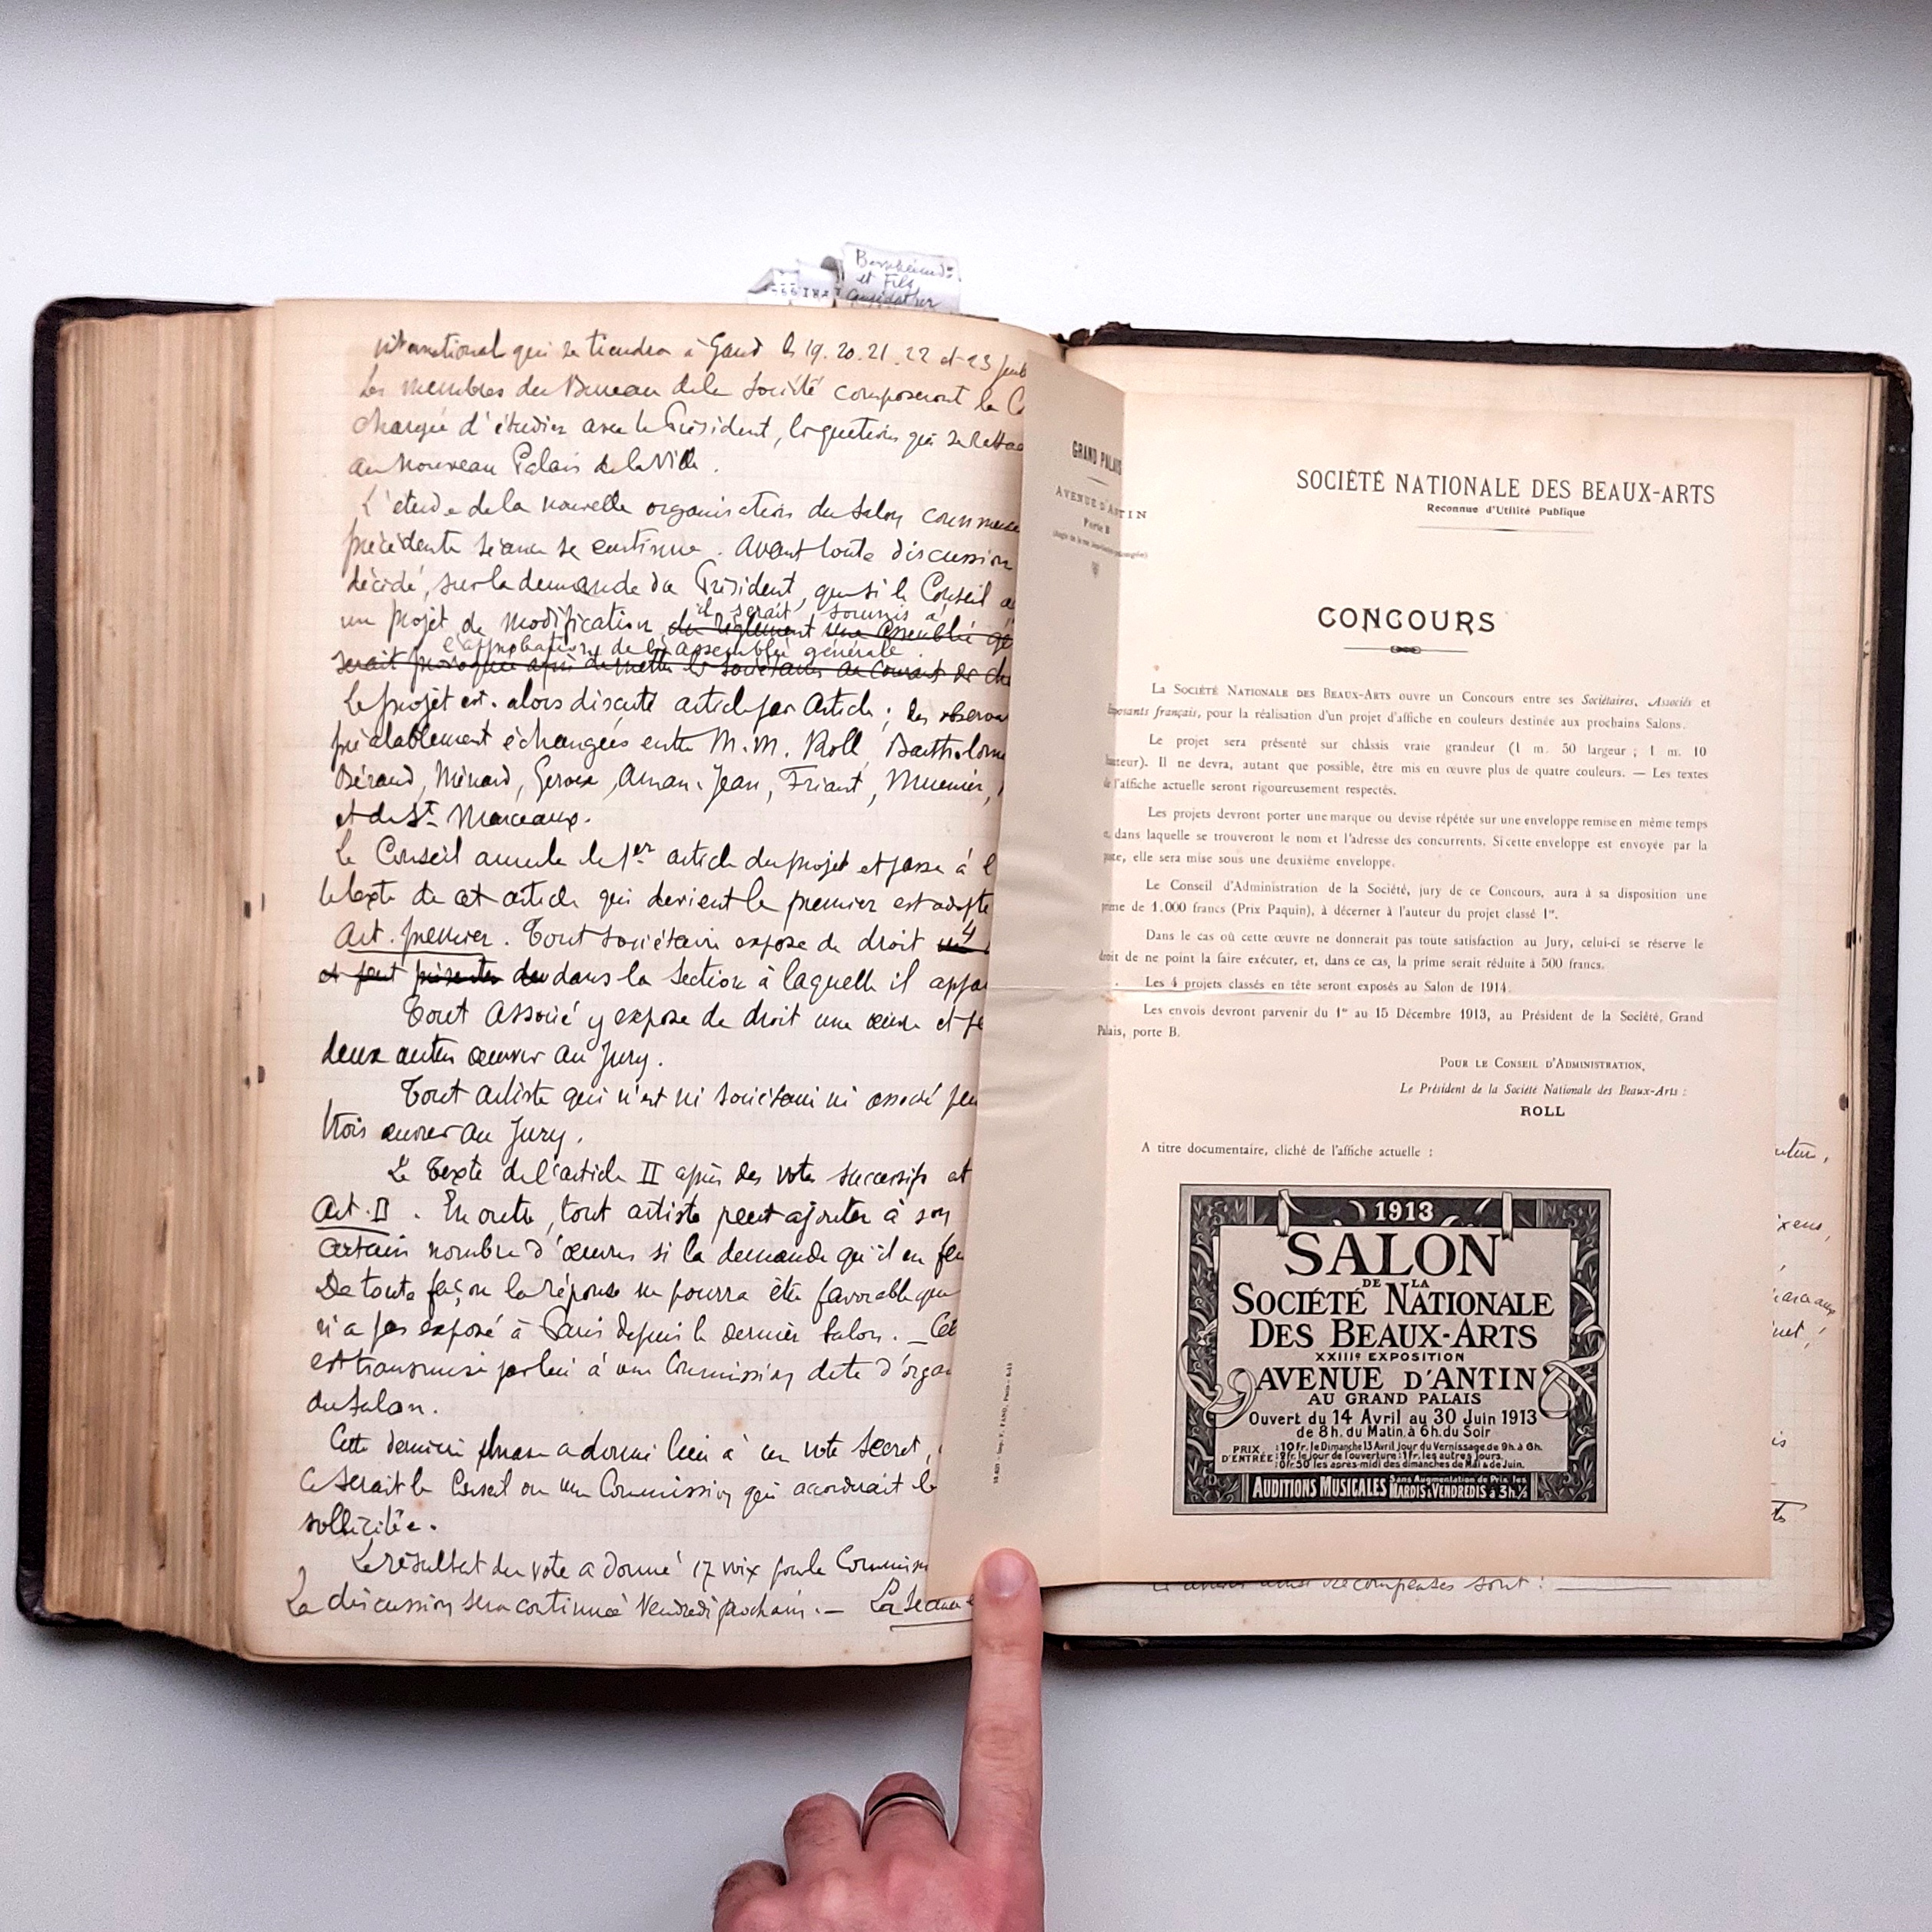 et Fils
international qui se tiendra à Gand les 19. 20. 21. 22 et 23
Les membres du Bureau de la Société composeront la
chargée d'étudier avec le Président, les questions qui se
au Nouveau Palais de la Ville.
L'étude de la nouvelle organisation du Salon
précédente séance se continue. Avant toute discussion
décidé, sur la demande du Président, que si le Conseil
il serait soumis à
un projet de modification du règlement une assemblée
l'approbation de l'assemblée générale.
serait provoquée afin de mettre les sociétaires au courant de
Le projet est alors discuté article par Article ; les
préalablement échangées entre M.M. Roll,
Béraud, Ménard, Gervex, Aman-Jean, Friant, Muenier,
et de St Marceaux.
Le Conseil annule le 1er article du projet et passe à
le texte de cet article qui devient le premier est
Art. premier. Tout sociétaire expose de droit 4
et peut présenter dans la Section à laquelle il
Tout Associé y expose de droit une œuvre et
deux autres œuvres au Jury.
Tout artiste qui n'est ni sociétaire ni associé
trois œuvres au Jury.
Le Texte de l'article II après des votes successifs
Art. II. En outre, tout artiste peut ajouter à son
certain nombre d'œuvres si la demande qu'il en
De toute façon la réponse ne pourra être favorable que
n'a pas exposé à Paris depuis le dernier Salon. —
est transmise par lui à une Commission dite
du Salon.
Cette dernière phrase a donné lieu à un vote secret,
ce serait le Conseil ou une Commission qui accorderait
sollicitée.
Le résultat du vote a donné 17 voix pour la
La discussion sera continuée Vendredi prochain. —
GRAND PALAIS
AVENUE D'ANTIN
Porte B
SOCIÉTÉ NATIONALE DES BEAUX-ARTS
Reconnue d'Utilité Publique
CONCOURS
La SOCIÉTÉ NATIONALE DES BEAUX-ARTS ouvre un Concours entre ses Sociétaires, Associés et
Exposants français, pour la réalisation d'un projet d'affiche en couleurs destinée aux prochains Salons.
Le projet sera présenté sur châssis vraie grandeur (1 m. 50 largeur ; 1 m. 10
hauteur). Il ne devra, autant que possible, être mis en œuvre plus de quatre couleurs. — Les textes
de l'affiche actuelle seront rigoureusement respectés.
Les projets devront porter une marque ou devise répétée sur une enveloppe remise en même temps
et, dans laquelle se trouveront le nom et l'adresse des concurrents. Si cette enveloppe est envoyée par la
poste, elle sera mise sous une deuxième enveloppe.
Le Conseil d'Administration de la Société, jury de ce Concours, aura à sa disposition une
prime de 1.000 francs (Prix Paquin), à décerner à l'auteur du projet classé 1er.
Dans le cas où cette œuvre ne donnerait pas toute satisfaction au Jury, celui-ci se réserve le
droit de ne point la faire exécuter, et, dans ce cas, la prime serait réduite à 500 francs.
Les 4 projets classés en tête seront exposés au Salon de 1914.
Les envois devront parvenir du 1er au 15 Décembre 1913, au Président de la Société, Grand
Palais, porte B.
POUR LE CONSEIL D'ADMINISTRATION,
Le Président de la Société Nationale des Beaux-Arts :
ROLL
A titre documentaire, cliché de l'affiche actuelle :
1913
SALON
DE LA
SOCIÉTÉ NATIONALE
DES BEAUX-ARTS
XXIIIe EXPOSITION
AVENUE D'ANTIN
AU GRAND PALAIS
Ouvert du 14 Avril au 30 Juin 1913
de 8h. du Matin, à 6h. du Soir
PRIX D'ENTRÉE : 10 Fr. le Dimanche 13 Avril Jour du Vernissage de 9h. à 6h.
2 fr. le jour de l'ouverture : 1 Fr. les autres Jours.
0 fr. 50 les après-midi des dimanches de Mai & de Juin.
AUDITIONS MUSICALES Sans Augmentation de Prix les
MARDIS & VENDREDIS à 3h.½
récompenses sont :